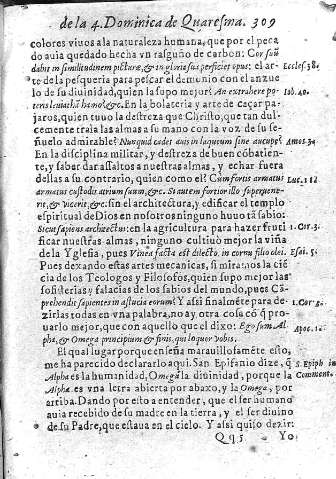 de la 4. Dominica de Quaresma. 309
colores viuos a la naturaleza humana, que por el peca
do auia quedado hecha vn rasguño de carbon: Cor suũ
dabit in similitudinem picturæ, & in gloria sua perficiet opus: el ar- Eccles. 38.
te de la pesqueria para pescar el demonio con el anzue
lo de su diuinidad, quien la supo mejor? An extrahere po- Iob. 40.
tens leuiathã hamo? &c. En la bolateria y arte de caçar pa-
jaros, quien tuuo la destreza que Christo, que tan dul-
cemente traia las almas a su mano con la voz de su se-
ñuelo admirable? Nunquid cadet auis in laqueum sine aucupe? Amos. 3
En la disciplina militar, y destreza de buen cõbatien-
te, y saber dar assaltos a nuestras almas, y echar fuera
dellas a su contrario, quien como el? Cum fortis armatus
armatus custodit atrium suum, &c. Si autem fortior illo superuene- Luc. 11
rit, & vicerit, &c. sin el architectura, y edificar el templo
espiritual de Dios en nosotros ninguno huuo tã sabio:
Sicut sapiens architectus: en la agricultura para hazer fruti 1. Cor. 3.
ficar nuestras almas, ninguno cultiuò mejor la viña
de la Yglesia, pues Vinea facta est dilecto, in cornu filio olei. Esai. 5.
Pues dexando estas artes mecanicas, si miramos la ciẽ
cia de los Teologos y Filosofos, quien supo mejor las
sofisterias y falacias de los sabios del mundo, pues Cõ
prehendit sapientes in astucia eorum? Y assi finalmẽte para de- 1. Cor.
zirlas todas en vna palabra, no ay otra cosa cõ q̃ pro-
uarlo mejor, que con aquello que el dixo: Ego sum Al
pha, & Omega principium & finis, qui loquor vobis. Apoc. 1.
El qual lugar porque enseña marauillosamẽte esto,
me ha parecido declararlo aqui. San Epifanio dize, q̃ S. Epiph. in
Alpha es la humanidad, Omega la diuinidad, porque la Comment.
Alpha es vna letra abierta por abaxo, y la Omega, por
arriba. Dando por esto a entender, que el ser humano
auia recebido de su madre en la tierra, y el ser diuino
de su Padre, que estaua en el cielo. Y assi quiso dezir:
Qq 5 Yo